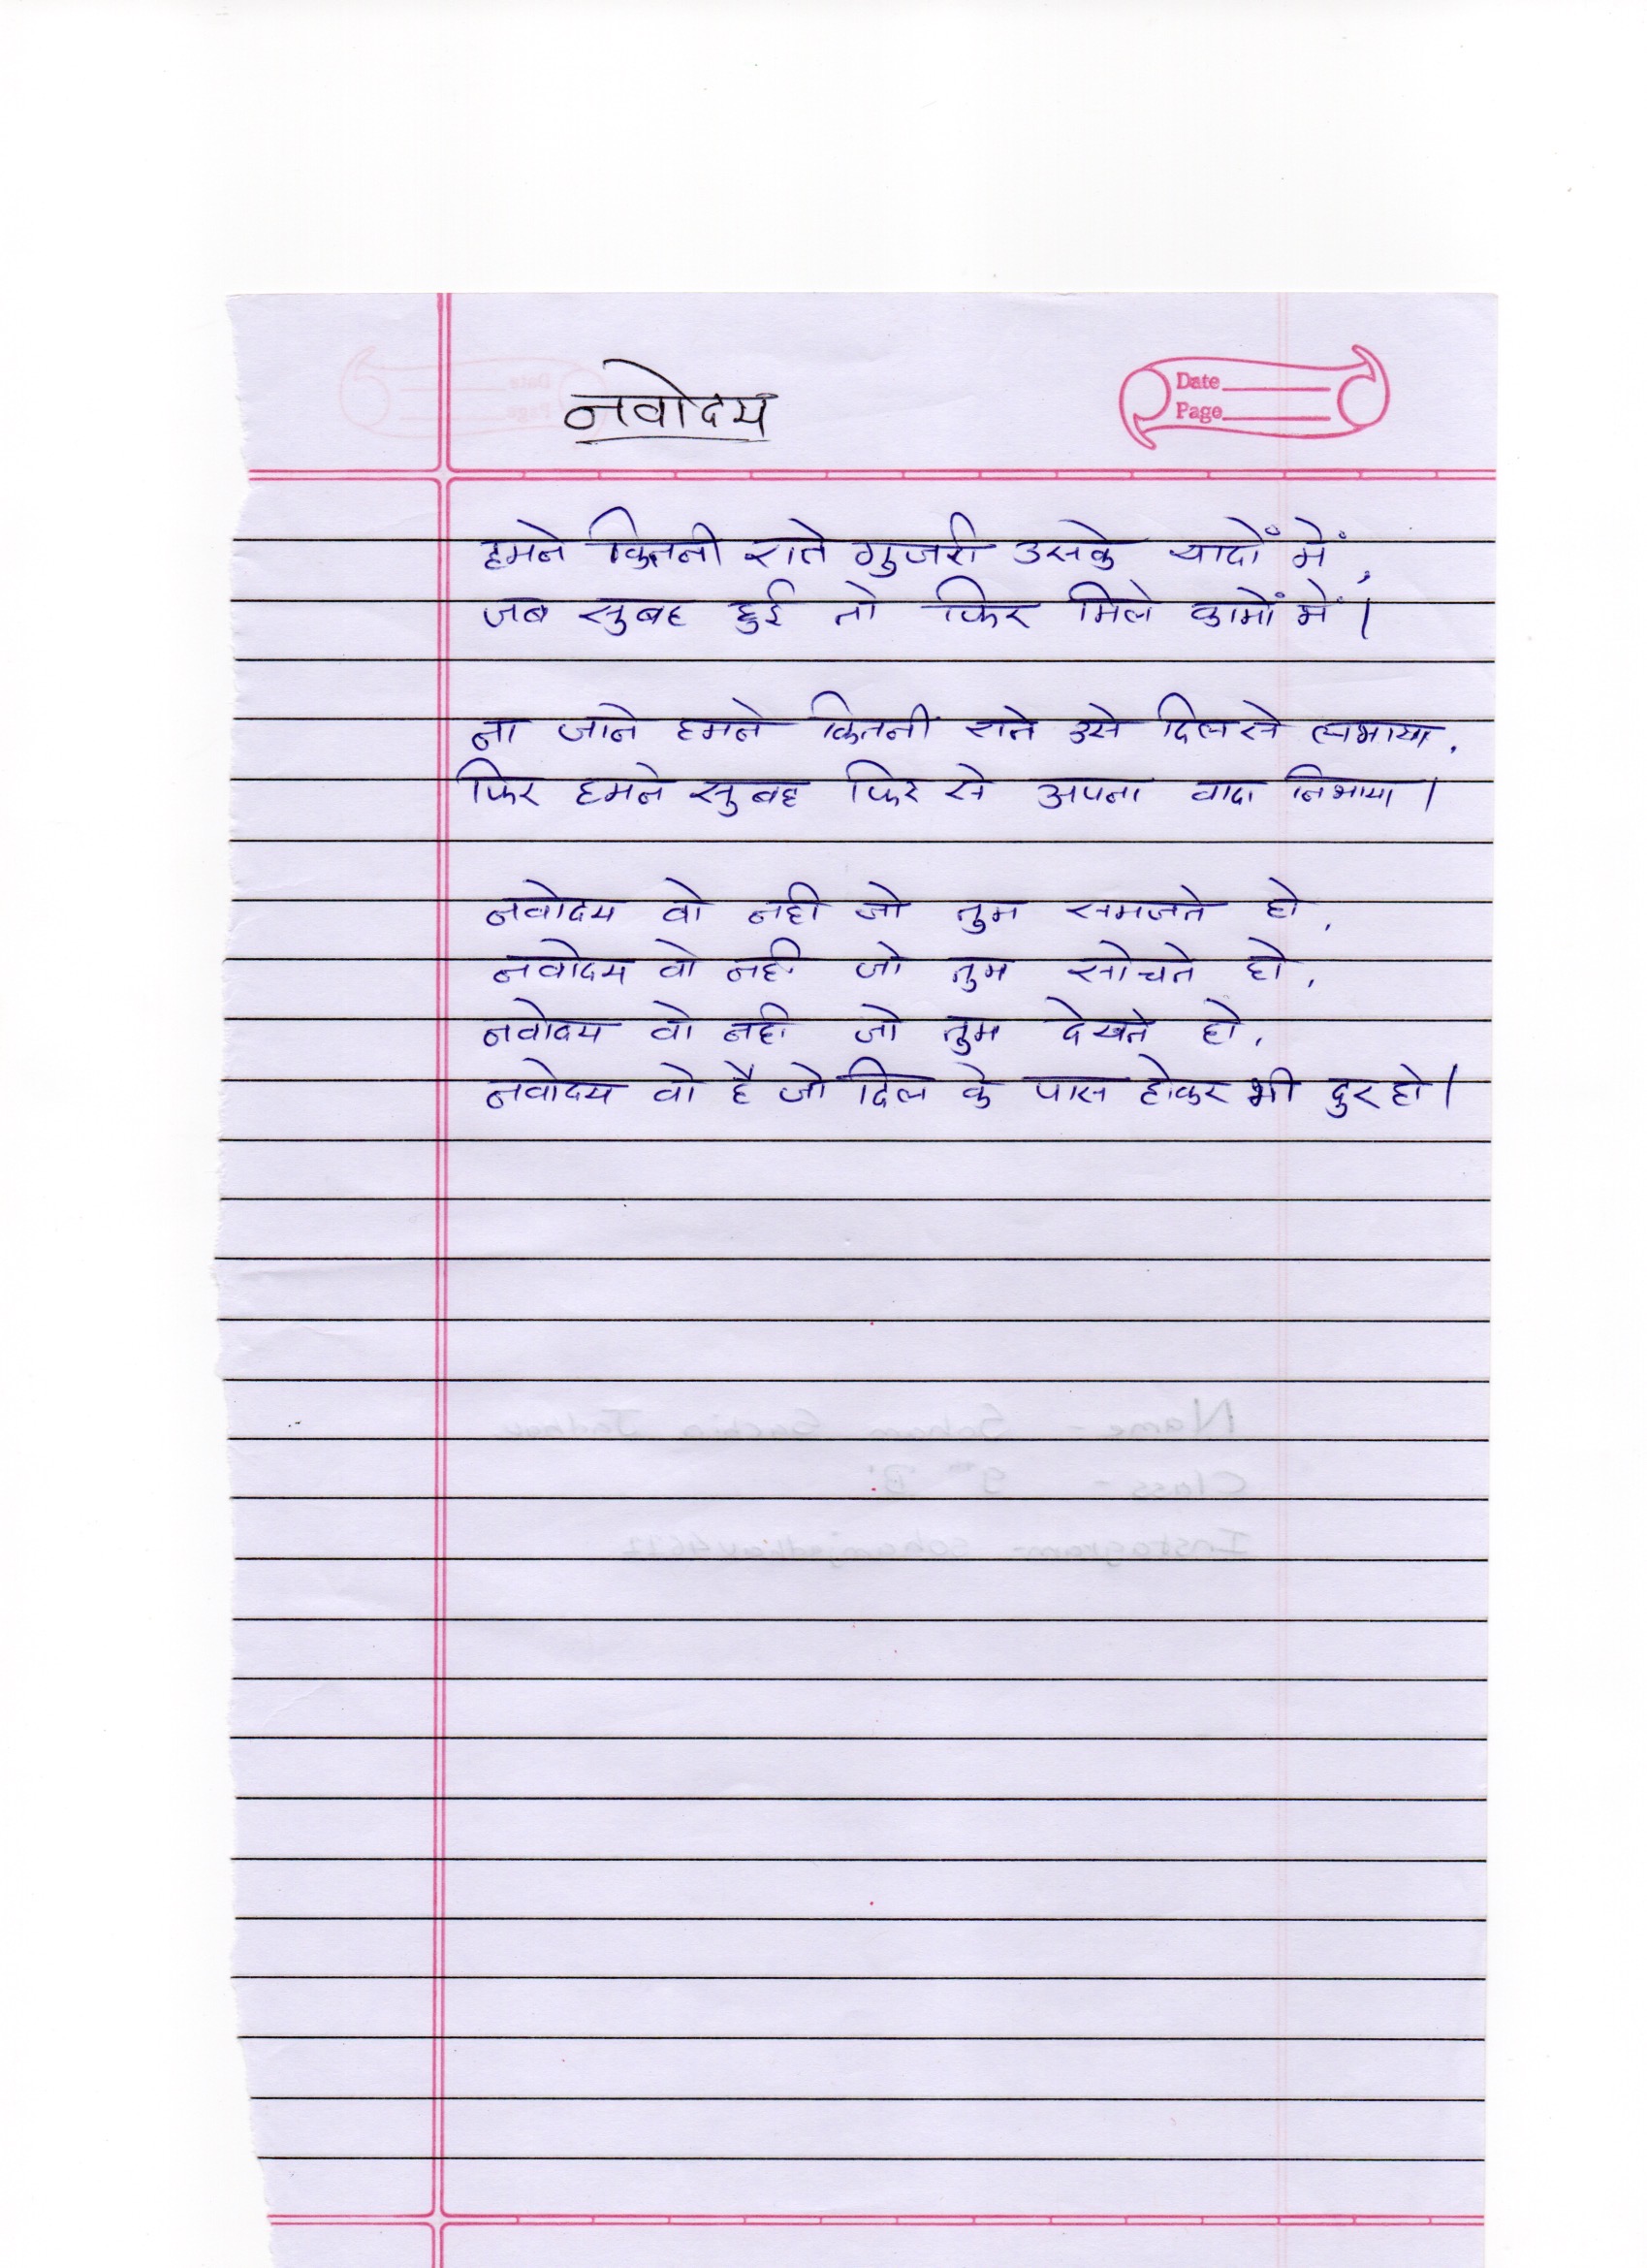 नवोदय
Date
Page
हमने कितनी राते गुजरी उसके यादों में,
जब सुबह हुई तो फिर मिले कामों में।
ना जाने हमने कितनी राते उसे दिल से
फिर हमने सुबह फिर से अपना वादा निभाया।
नवोदय वो नही जो तुम समजते हो,
नवोदय वो नही जो तुम सोचते हो,
नवोदय वो नही जो तुम देखते हो,
नवोदय वो है जो दिल के पास होकर भी दुर हो।
Name -
Class - 9th B
Instagram-